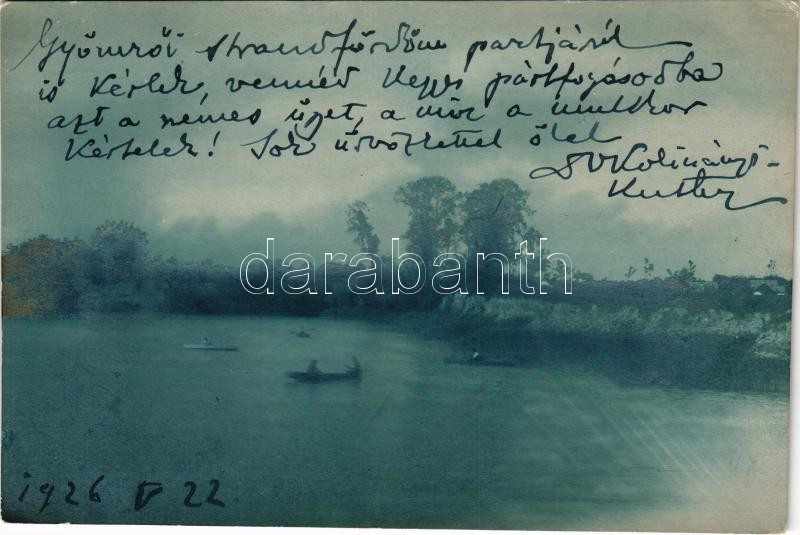 Gyömrői strandfürdőm partjáról
is kérlek, vennéd kegyes pártfogásodba
azt a nemes ügyet, a mire a multkor
kértelek! Sok üdvözlettel ölel
Kolinányi-
darabanth
1926 V 22